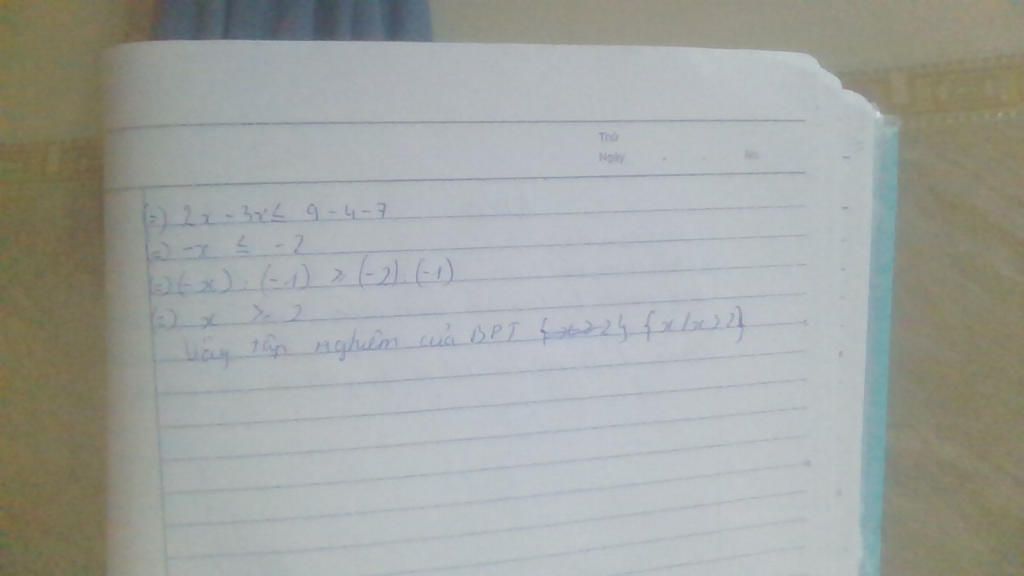 Thứ
Ngày . . No.
(=) 2x - 3x ≤ 9 - 4 - 7
(=) -x ≤ -2
(=) (-x) . (-1) ≥ (-2) . (-1)
(=) x ≥ 2
Vậy tập nghiệm của BPT {x≥2} {x/x≥2}